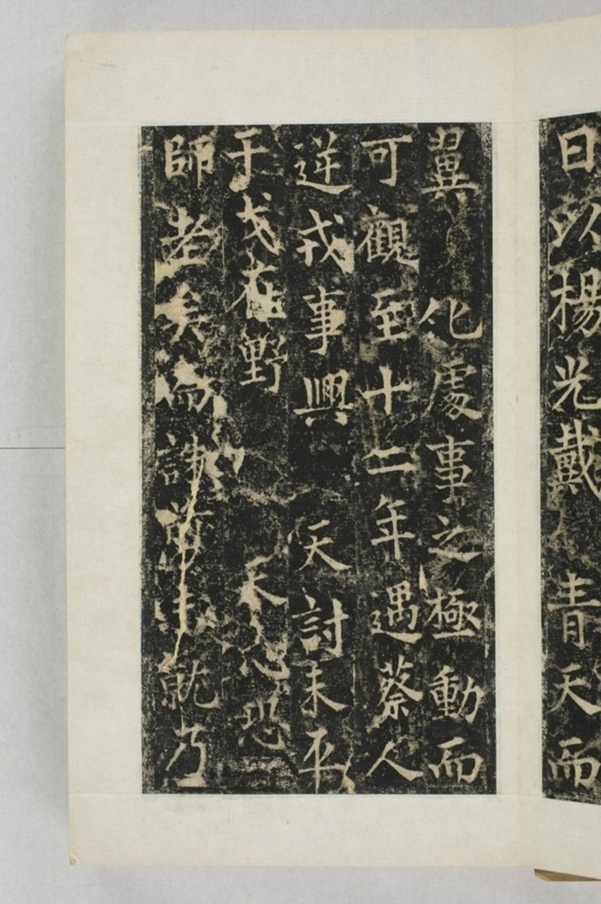 日以楊光戴　青天而
翼　化處事之極動而
可觀至十二年遇蔡人
逆戎事興　天討未平
干戈在野　　天心恐
師老矣而諫　　就乃